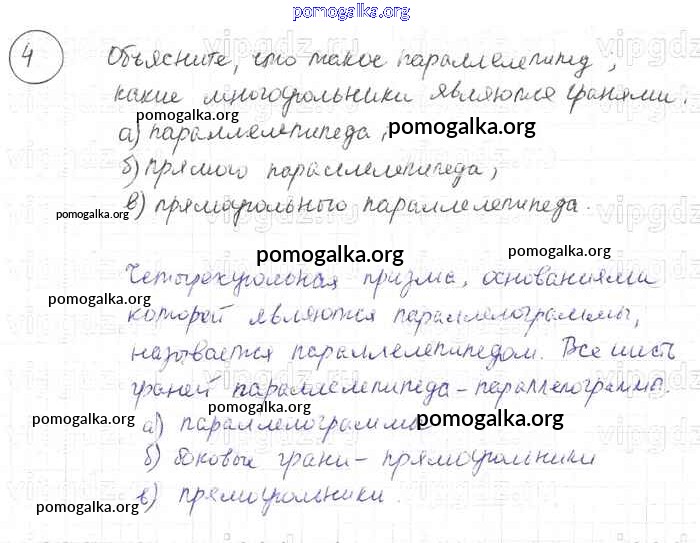 pomogalka.org
4 Объясните, что такое параллелепипед,
какие многоугольники являются гранями:
pomogalka.org
а) параллелепипеда, pomogalka.org
б) прямого параллелепипеда,
в) прямоугольного параллелепипеда.
pomogalka.org
pomogalka.org
pomogalka.org
Четырехугольная призма, основаниями
pomogalka.org
которой являются параллелограммы,
называется параллелепипедом. Все шесть
граней параллелепипеда - параллелограммы.
pomogalka.org
pomogalka.org
pomogalka.org
а) параллелограммы
б) боковые грани - прямоугольники
в) прямоугольники.
pomogalka.org
pomogalka.org